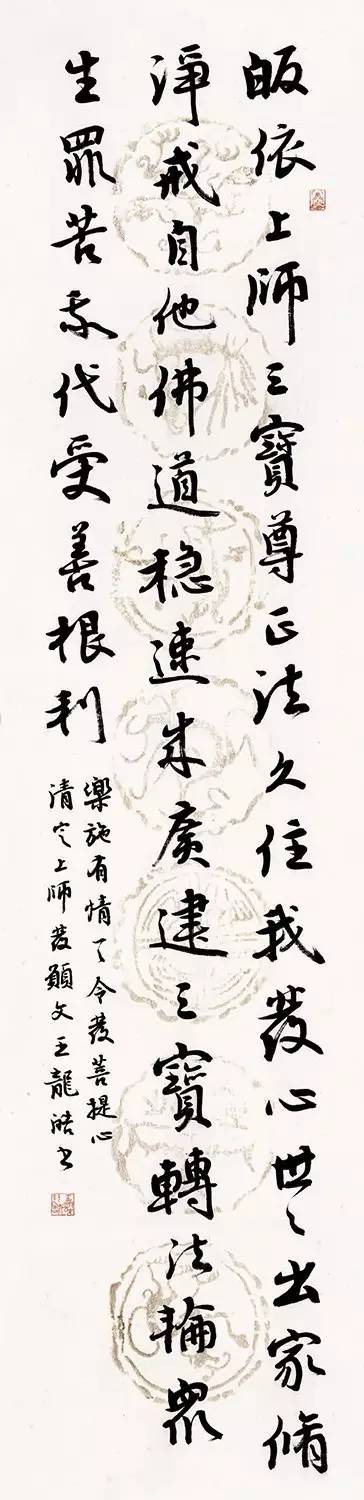 皈依上師三寶尊正法久住我發心世々出家脩
淨戒自他佛道穩速成廣建三寶轉法輪眾
生罪苦我代受善根利
樂施有情々令發菩提心
清定上師發願文王龍皓書